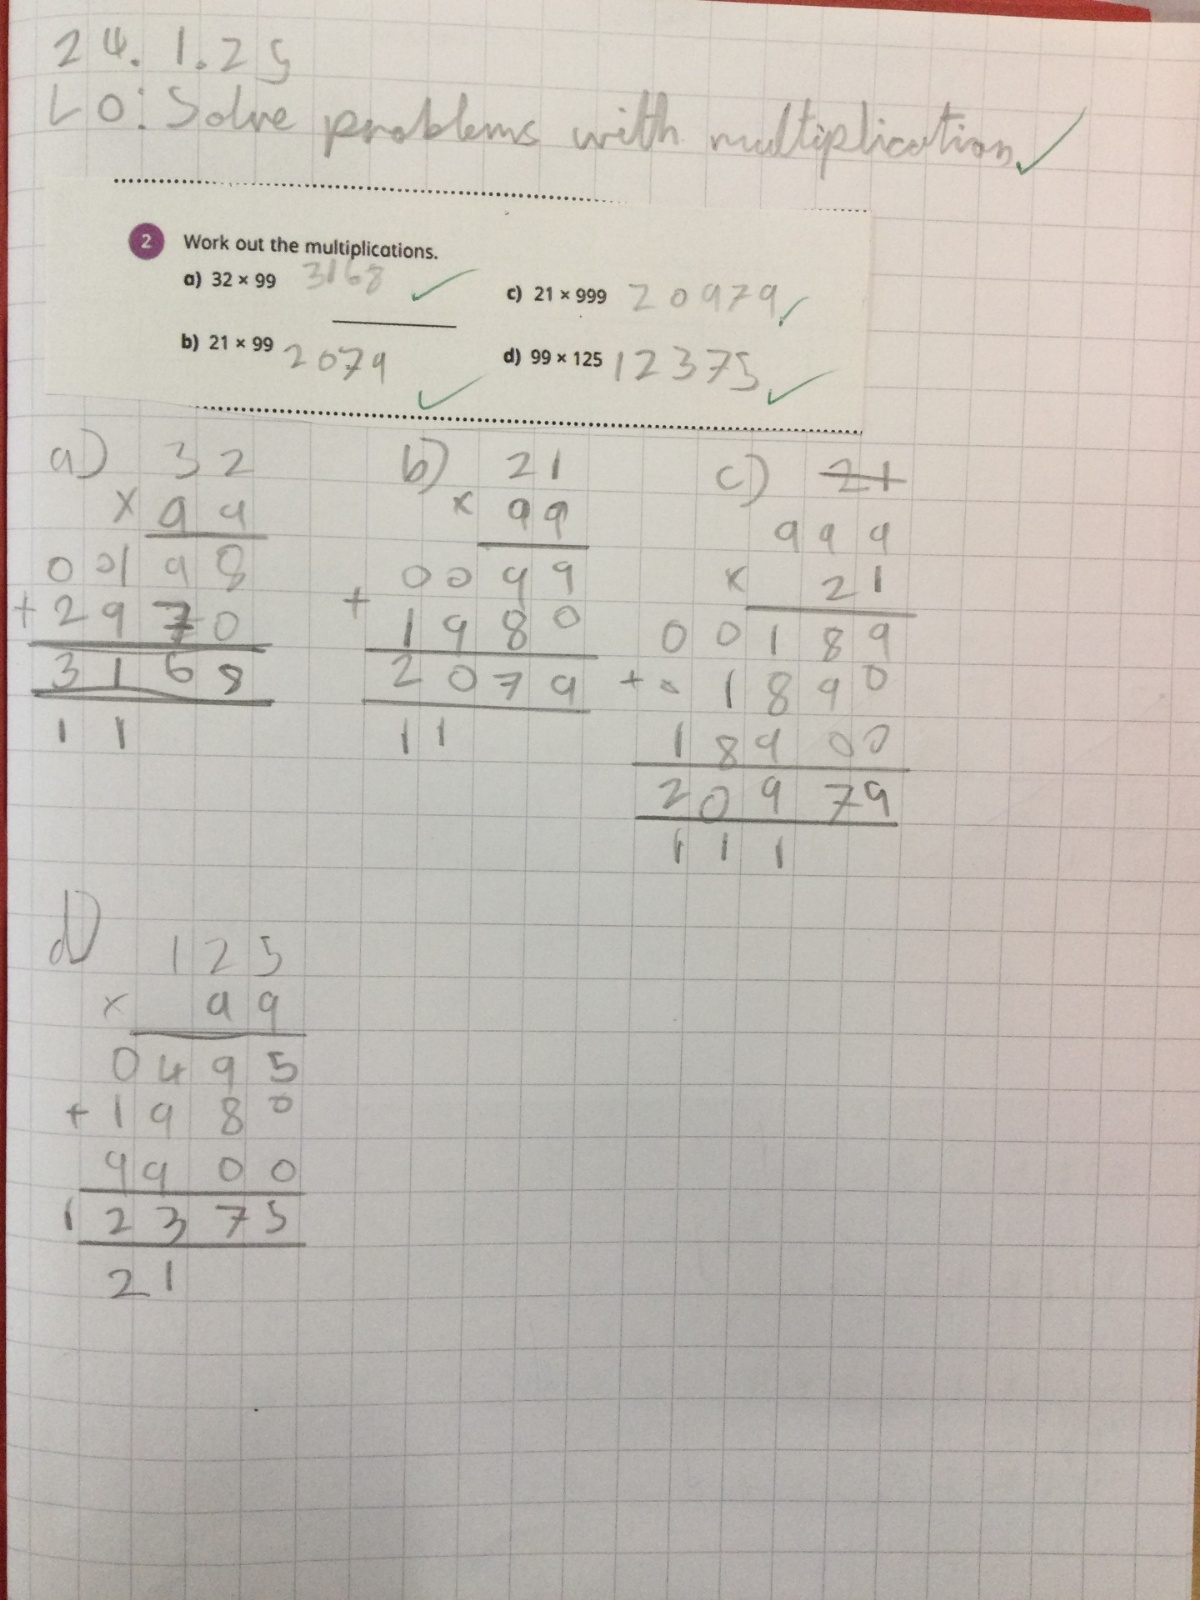 24.1.25
LO: Solve problems with multiplication
2 Work out the multiplications.
a) 32 × 99 3168
c) 21 × 999 20979
b) 21 × 99 2079
d) 99 × 125 12375
a) 32
× 99
00198
+ 2970
3168
11
b) 21
× 99
0099
+ 1980
2079
11
c) 21
999
× 21
00189
+ 01890
18900
20979
111
d) 125
× 99
0495
+ 1980
9900
12375
21